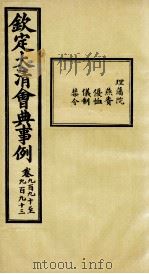 欽定大清會典事例
卷九百九十至
九百九十三
理藩院
燕賚
優恤
儀制
禁令